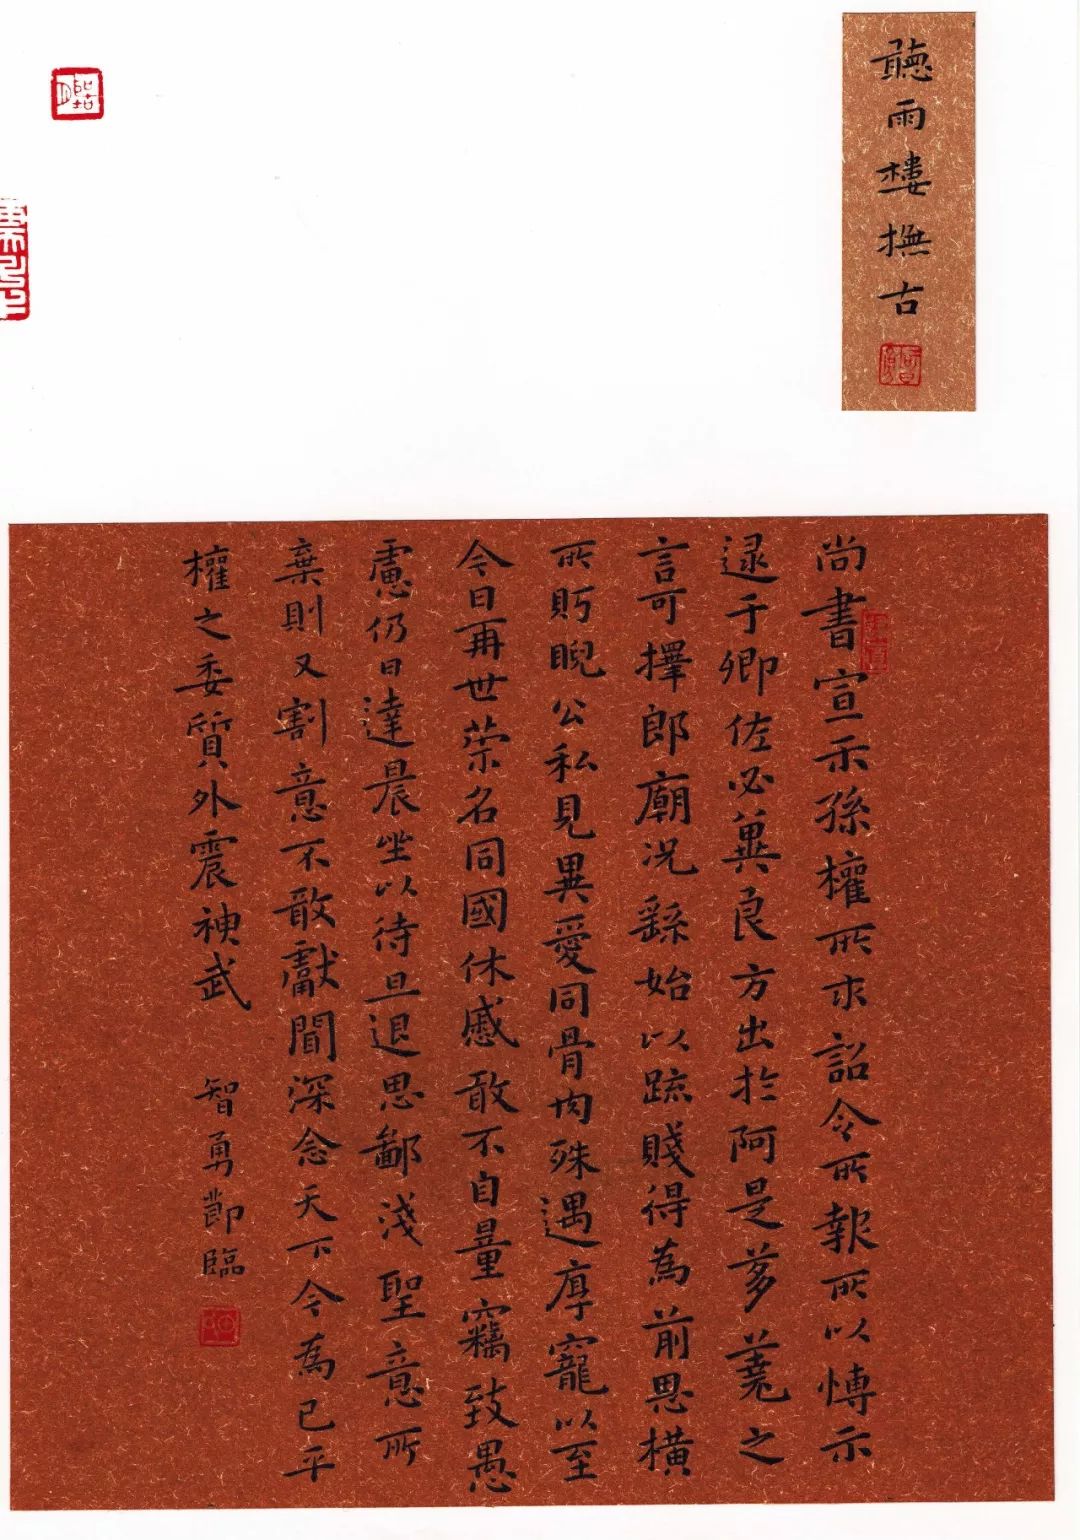 聽雨樓撫古
尚書宣示孫權所求詔令所報所以博示
逮于卿佐必冀良方出於阿是芻蕘之
言可擇郎廟況繇始以疏賤得為前恩橫
所眄睨公私見異愛同骨肉殊遇厚寵以至
今日再世榮名同國休慼敢不自量竊致愚
慮仍日達晨坐以待旦退思鄙淺聖意所
棄則又割意不敢獻聞深念天下今為已平
權之委質外震神武
智勇節臨